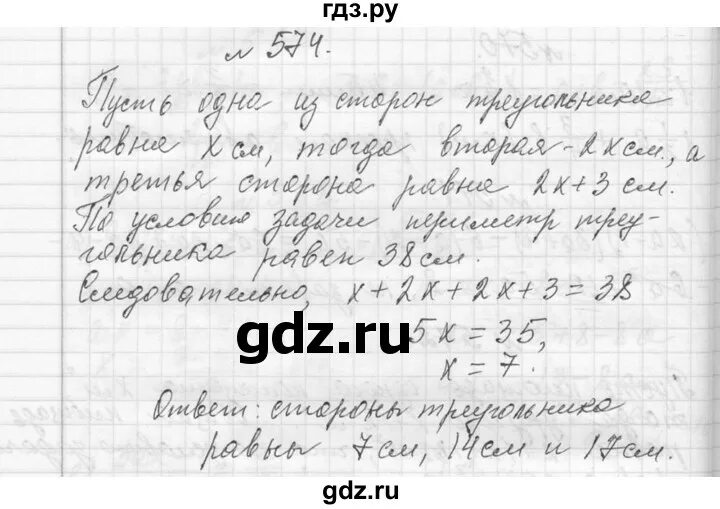 гдз.ру
№ 574.
Пусть одна из сторон треугольника
равна x см, тогда вторая - 2x см, а
третья сторона равна 2x + 3 см.
По условию задачи периметр треу-
гольника равен 38 см.
Следовательно, x + 2x + 2x + 3 = 38
gdz.ru
5x = 35,
x = 7.
Ответ: стороны треугольника
равны 7 см, 14 см и 17 см.
gdz.ru